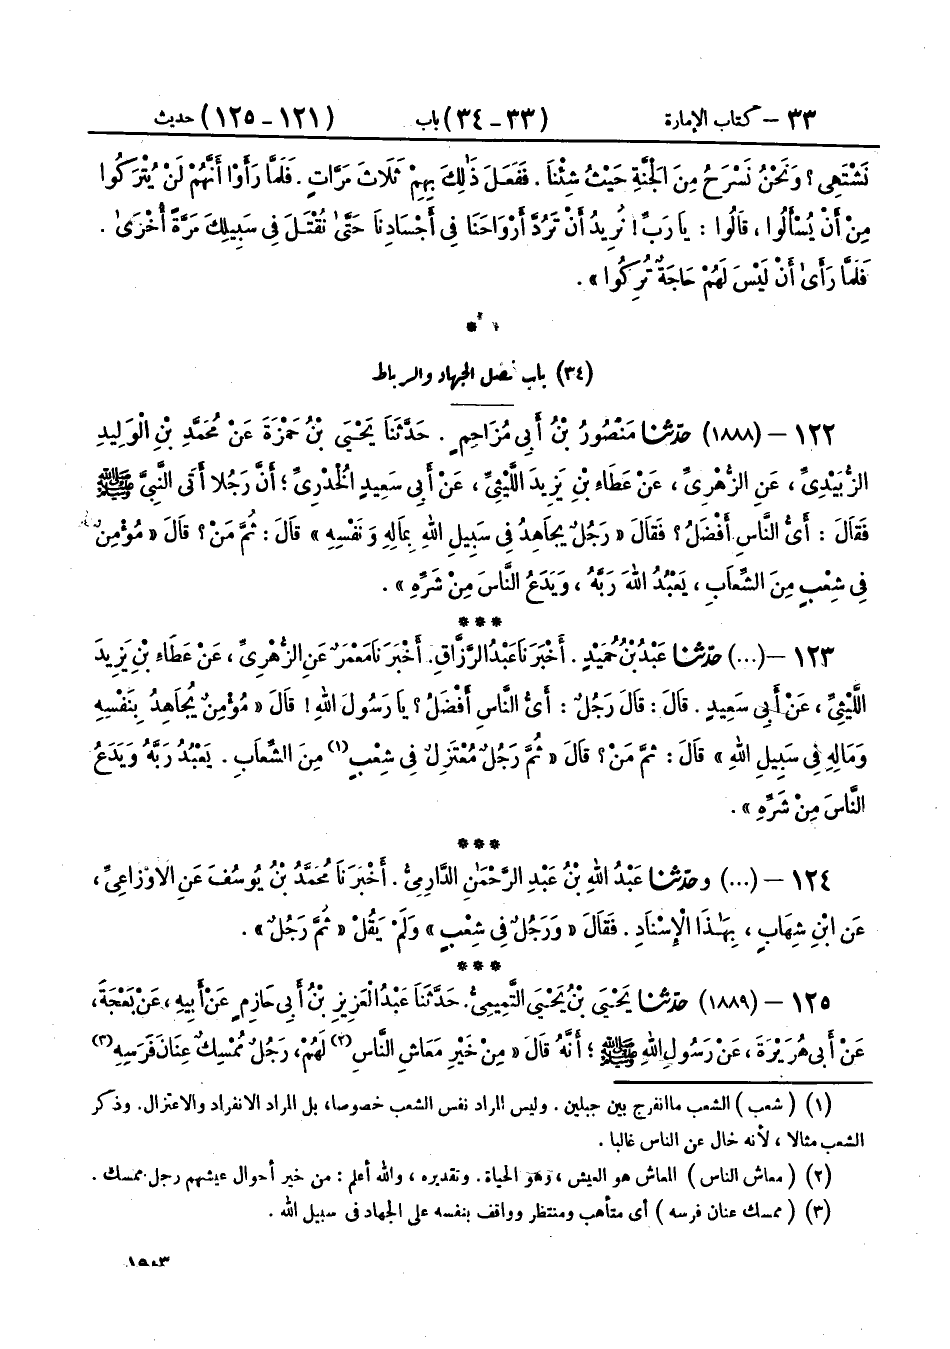 ٣٣ – كتاب الإمارة (٣٣ – ٣٤) باب (١٢١ – ١٢٥) حديث
نَشْتَهِى؟ وَنَحْنُ نَسْرَحُ مِنَ الْجَنَّةِ حَيْثُ شِئْنَا. فَفَعَلَ ذَلِكَ بِهِمْ ثَلَاثَ مَرَّاتٍ. فَلَمَّا رَأَوْا أَنَّهُمْ لَنْ يُتْرَكُوا
مِنْ أَنْ يُسْأَلُوا، قَالُوا: يَا رَبِّ! نُرِيدُ أَنْ تَرُدَّ أَرْوَاحَنَا فِى أَجْسَادِنَا حَتَّىٰ نُقْتَلَ فِى سَبِيلِكَ مَرَّةً أُخْرَىٰ.
فَلَمَّا رَأَىٰ أَنْ لَيْسَ لَهُمْ حَاجَةٌ تُرِكُوا».
(٣٤) باب فضل الجهاد والرباط
١٢٢ – (١٨٨٨) حدّثنا مَنْصُورُ بْنُ أَبِى مُزَاحِمٍ. حَدَّثَنَا يَحْيَىٰ بْنُ حَمْزَةَ عَنْ مُحَمَّدِ بْنِ الْوَلِيدِ
الزُّبَيْدِىِّ، عَنِ الزُّهْرِىِّ، عَنْ عَطَاءِ بْنِ يَزِيدَ اللَّيْثِىِّ، عَنْ أَبِى سَعِيدٍ الْخُدْرِىِّ؛ أَنَّ رَجُلًا أَتَى النَّبِىَّ ﷺ
فَقَالَ: أَىُّ النَّاسِ أَفْضَلُ؟ فَقَالَ «رَجُلٌ يُجَاهِدُ فِى سَبِيلِ اللهِ بِمَالِهِ وَنَفْسِهِ» قَالَ: ثُمَّ مَنْ؟ قَالَ «مُؤْمِنٌ
فِى شِعْبٍ مِنَ الشِّعَابِ، يَعْبُدُ اللهَ رَبَّهُ، وَيَدَعُ النَّاسَ مِنْ شَرِّهِ».
***
١٢٣ – (...) حدّثنا عَبْدُ بْنُ حُمَيْدٍ. أَخْبَرَنَا عَبْدُ الرَّزَّاقِ. أَخْبَرَنَا مَعْمَرٌ عَنِ الزُّهْرِىِّ، عَنْ عَطَاءِ بْنِ يَزِيدَ
اللَّيْثِىِّ، عَنْ أَبِى سَعِيدٍ. قَالَ: قَالَ رَجُلٌ: أَىُّ النَّاسِ أَفْضَلُ؟ يَا رَسُولَ اللهِ! قَالَ «مُؤْمِنٌ يُجَاهِدُ بِنَفْسِهِ
وَمَالِهِ فِى سَبِيلِ اللهِ» قَالَ: ثُمَّ مَنْ؟ قَالَ «ثُمَّ رَجُلٌ مُعْتَزِلٌ فِى شِعْبٍ (١) مِنَ الشِّعَابِ. يَعْبُدُ رَبَّهُ وَيَدَعُ
النَّاسَ مِنْ شَرِّهِ».
***
١٢٤ – (...) وحدّثنا عَبْدُ اللهِ بْنُ عَبْدِ الرَّحْمَٰنِ الدَّارِمِىُّ. أَخْبَرَنَا مُحَمَّدُ بْنُ يُوسُفَ عَنِ الْأَوْزَاعِىِّ،
عَنِ ابْنِ شِهَابٍ، بِهَٰذَا الْإِسْنَادِ. فَقَالَ «وَرَجُلٌ فِى شِعْبٍ» وَلَمْ يَقُلْ «ثُمَّ رَجُلٌ».
***
١٢٥ – (١٨٨٩) حدّثنا يَحْيَىٰ بْنُ يَحْيَىٰ التَّمِيمِىُّ. حَدَّثَنَا عَبْدُ الْعَزِيزِ بْنُ أَبِى حَازِمٍ عَنْ أَبِيهِ، عَنْ بَعْجَةَ،
عَنْ أَبِى هُرَيْرَةَ، عَنْ رَسُولِ اللهِ ﷺ؛ أَنَّهُ قَالَ «مِنْ خَيْرِ مَعَاشِ النَّاسِ (٢) لَهُمْ، رَجُلٌ مُمْسِكٌ عِنَانَ فَرَسِهِ (٣)
(١) (شعب) الشعب ما انفرج بين جبلين. وليس المراد نفس الشعب خصوصا، بل المراد الانفراد والاعتزال. وذكر
الشعب مثالا، لأنه خال عن الناس غالبا.
(٢) (معاش الناس) المعاش هو العيش، وهو الحياة. وتقديره، والله أعلم: من خير أحوال عيشهم رجل ممسك.
(٣) (ممسك عنان فرسه) أى متأهب ومنتظر وواقف بنفسه على الجهاد فى سبيل الله.
١٥٠٣